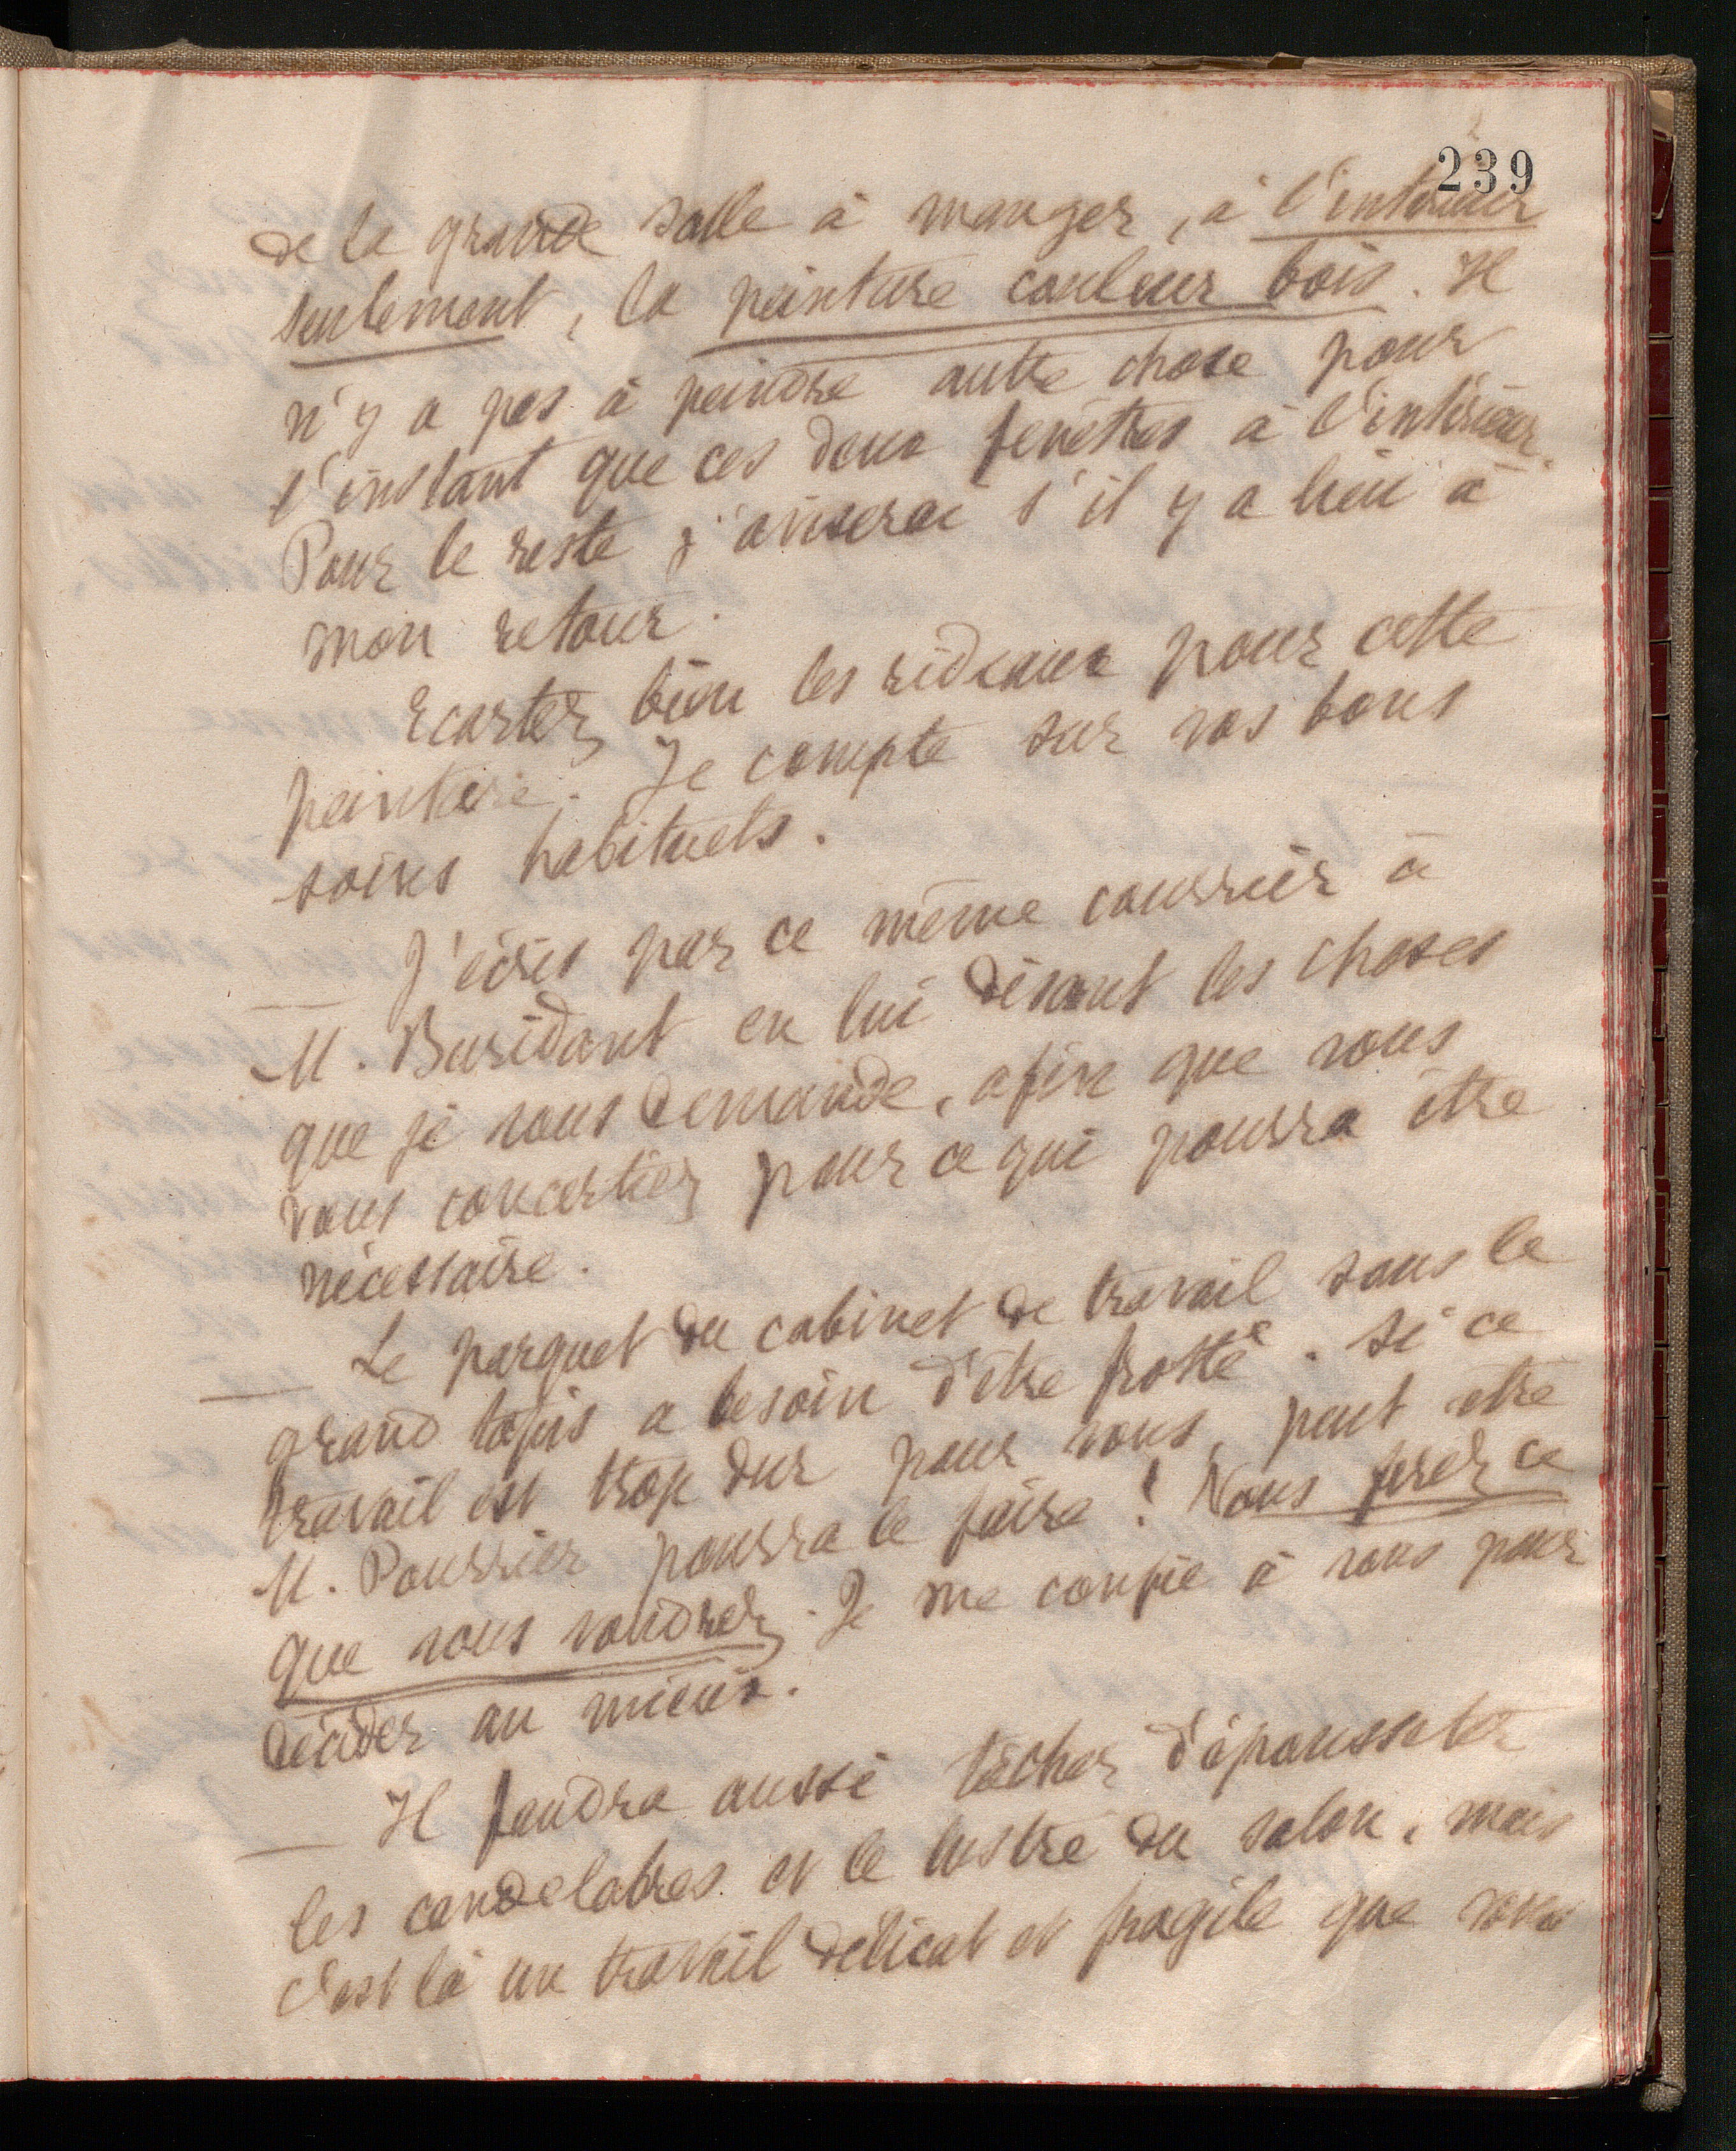 239
de la grande salle à manger, à l'intérieur
seulement, la peinture couleur bois. Il
n'y a pas à peindre autre chose pour
l'instant que ces deux fenêtres à l'intérieur.
Pour le reste j'aviserai s'il y a lieu à
mon retour.
Ecartez bien les rideaux pour cette
peinture. Je compte sur vos bons
soins habituels.
— J'écris par ce même courrier à
M. Buridant en lui disant les choses
que je vous demande, afin que vous
vous concertiez pour ce qui pourra être
nécessaire.
— Le parquet du cabinet de travail sous le
grand tapis a besoin d'être frotté. Si ce
travail est trop dur pour vous, peut être
M. Pourrier pourra le faire ! Vous ferez ce
que vous voudrez. Je me confie à vous pour
décider au mieux.
— Il faudra aussi tâcher d'épousseter
les candelabres et le lustre du salon, mais
c'est là un travail délicat et fragile que vous